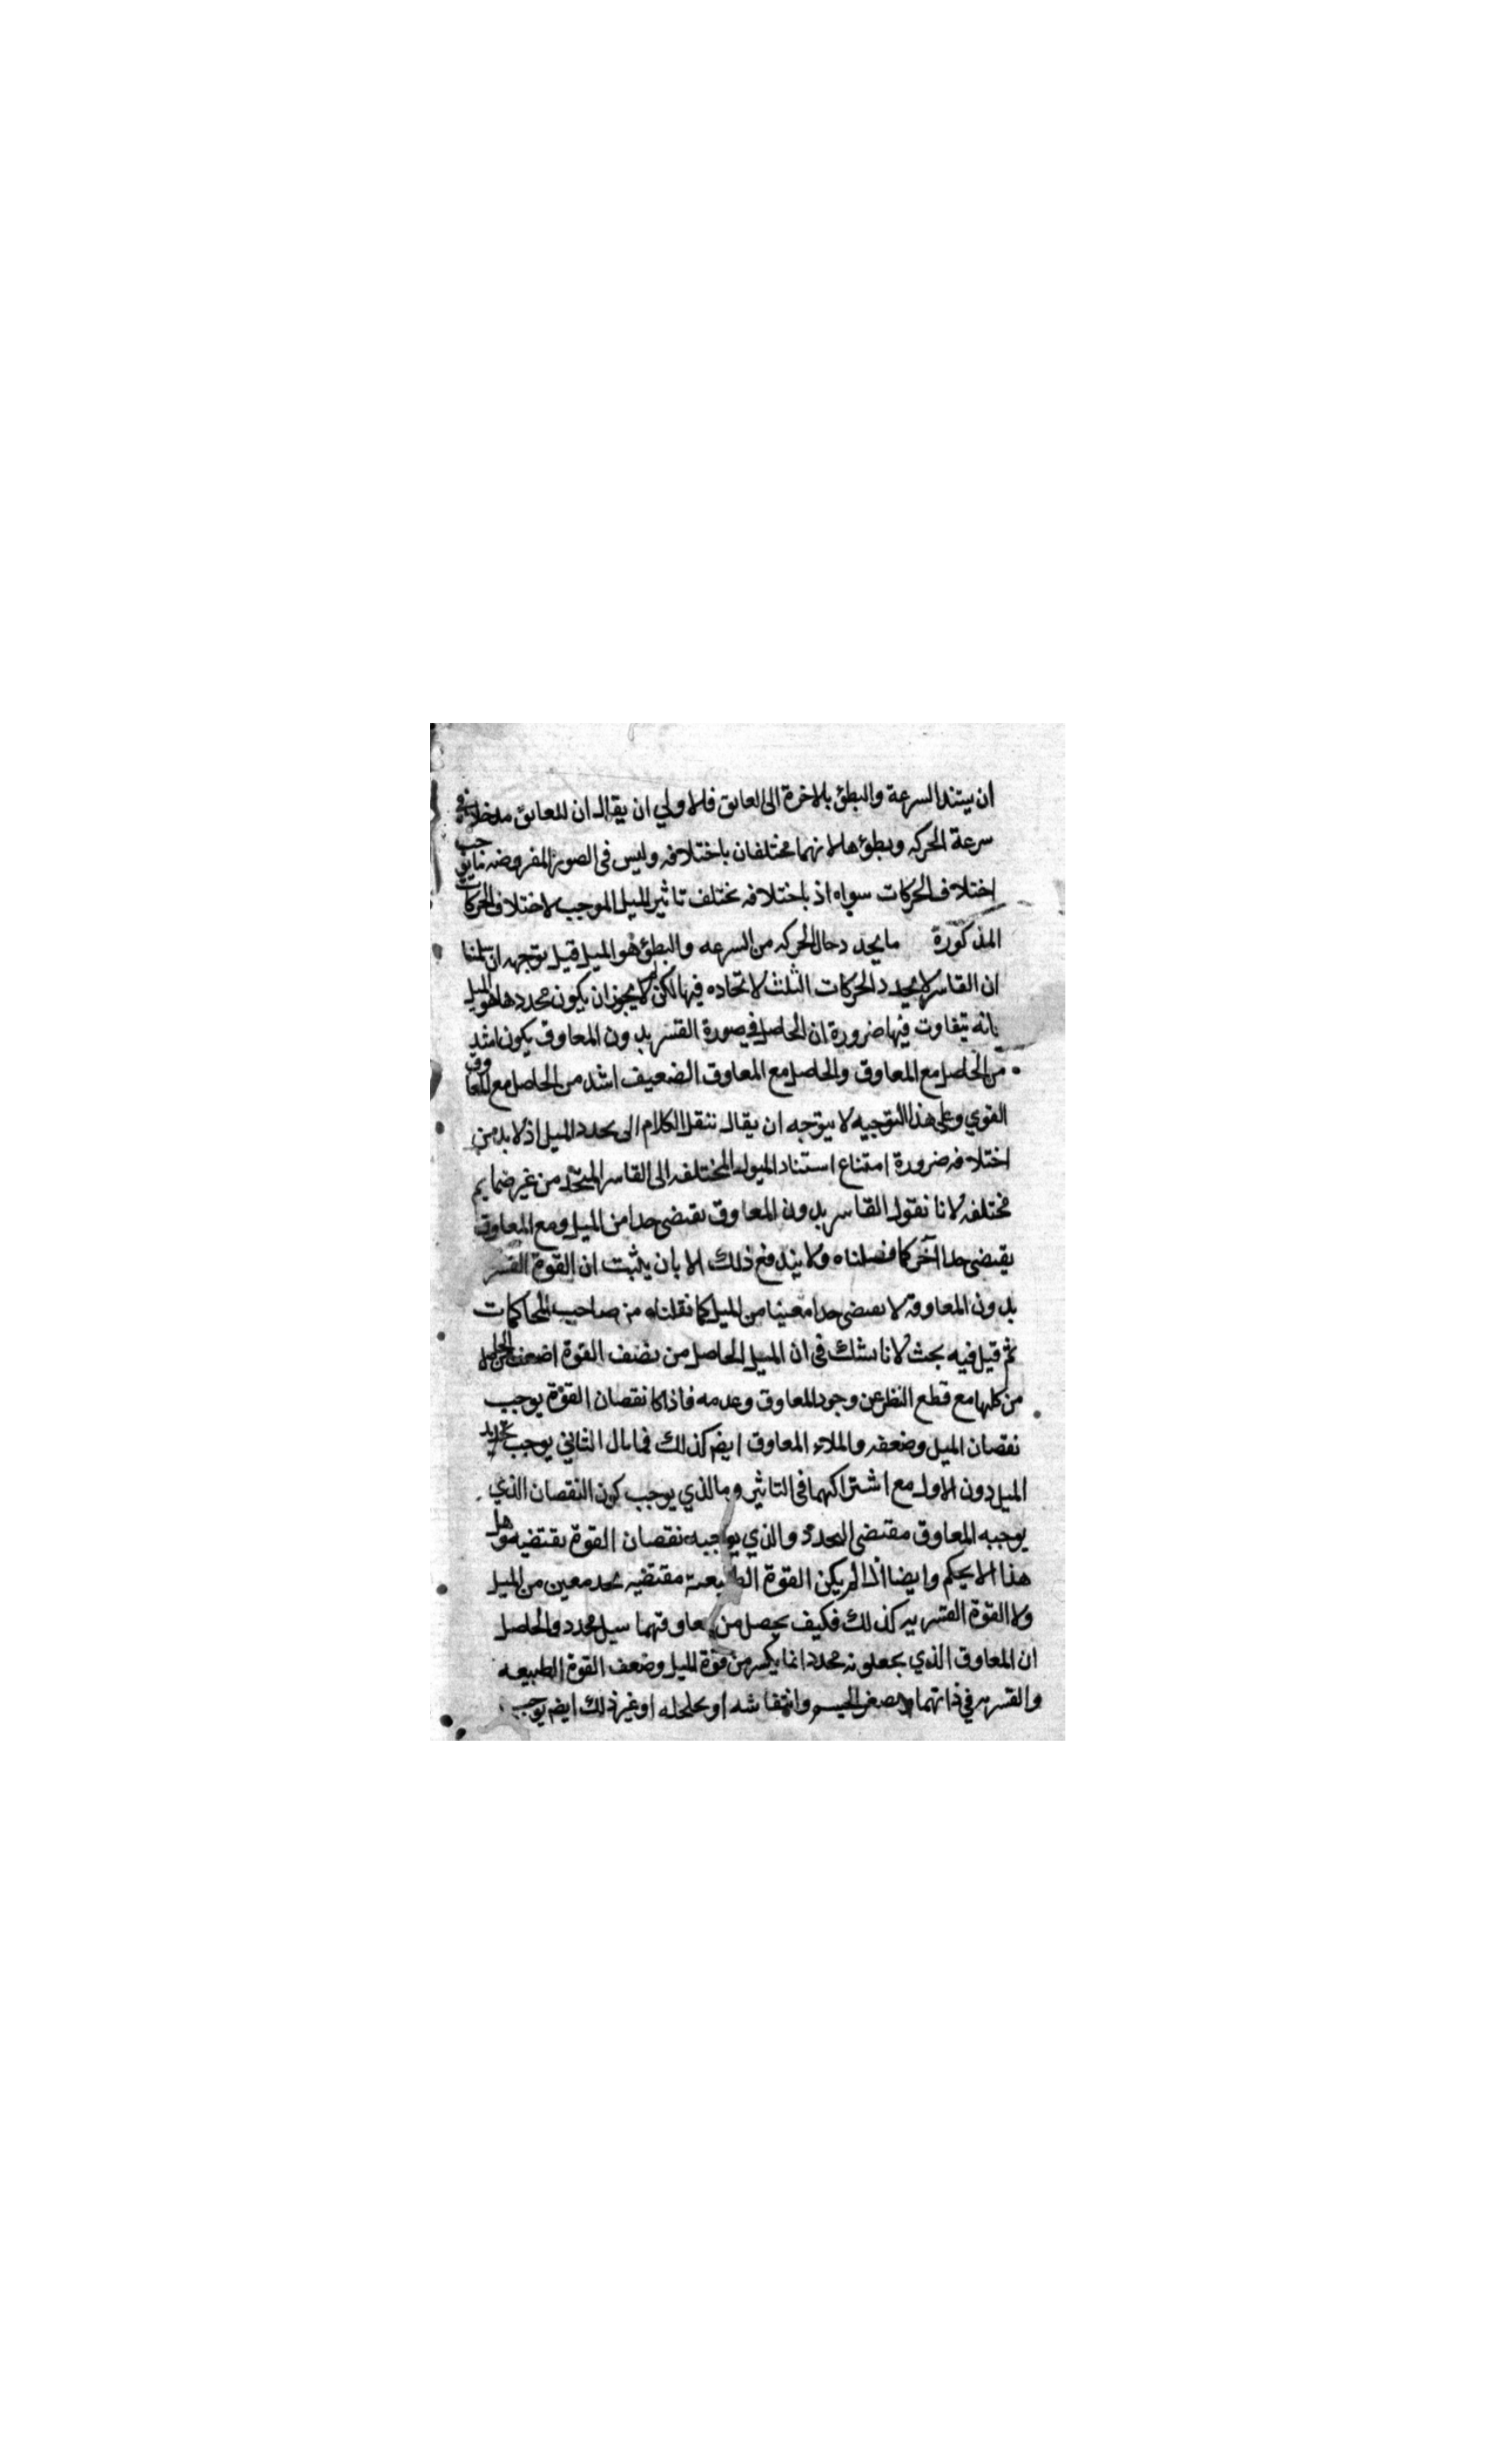 ان يستند السرعة والبطؤ بالاخرة الى العايق فالاولي ان يقال ان للعائق مدخلا في
سرعة الحركه وبطؤها لانهما مختلفان باختلافه وليس في الصور المفروضه ما يوجب
اختلاف الحركات سواه اذ باختلافه يختلف تاثير الميل الموجب لاختلاف الحركات
المذكورة ما يحدد حال الحركه من السرعه والبطؤ هو الميل قيل توجهه ان قلنا
ان القاسر لا يحدد الحركات الثلث لاتحاده فيها لكن لم لا يجوز ان يكون محددها هو الميل
بانه يتفاوت فيها ضرورة ان الحاصل في صورة القسر بدون المعاوق يكون اشد
من الحاصل مع المعاوق والحاصل مع المعاوق الضعيف اشد من الحاصل مع المعاوق
القوي وعلى هذا التوجيه لا يتوجه ان يقال ننقل الكلام الى تحدد الميل اذ لا بد من
اختلافه ضرورة امتناع استناد الميول المختلفه الى القاسر المتحد من غير ضمايم
مختلفه لانا نقول القاسر بدون المعاوق يقتضى حدا من الميل ومع المعاوق
يقتضى حدا آخر كما فصلناه ولا يندفع ذلك الا بان يثبت ان القوة القسر
بدون المعاوقه لا يقتضى حدا معينا من الميل كما نقلناه من صاحب المحاكمات
ثم قيل فيه بحث لانا نشك في ان الميل الحاصل من نصف القوة اضعف من الحاصل
من كلها مع قطع النظر عن وجود المعاوق وعدمه فاذا كا نقصان القوة يوجب
نقصان الميل وضعفه والملاء المعاوق ايضم كذلك فما بال الثاني يوجب تحديد
الميل دون الاول مع اشتراكهما في التاثير وما الذي يوجب كون النقصان الذي
يوجبه المعاوق مقتضى التحدد والذي يواجبه نقصان القوة يقتضيه وهل
هذا الا تحكم وايضا اذا لم يكن القوة الطبيعة مقتضيه لحد معين من الميل
ولا القوة القسريه كذلك فكيف يحصل من معاوقتهما سيل محدد والحاصل
ان المعاوق الذي يجعلونه محددا انما يكسر من قوة الميل وضعف القوة الطبيعه
والقسريه في ذاتهما وصغر الجسم وانتفاشه او تخلخله او غير ذلك ايضم يوجب